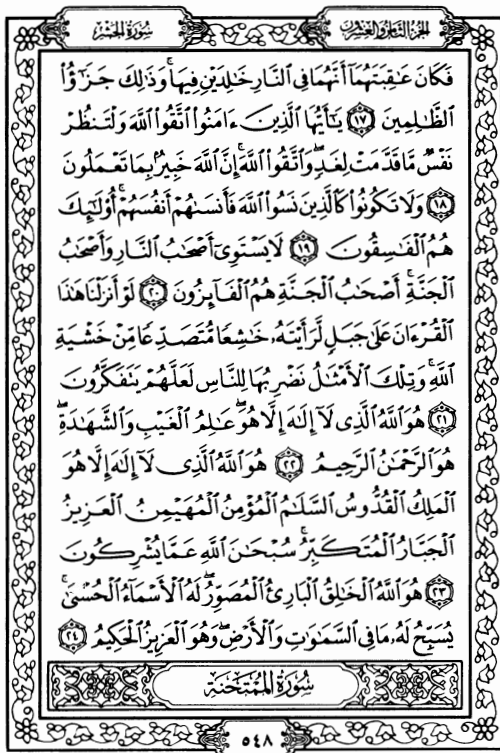 الجزء الثامن والعشرون
سورة الحشر
فَكَانَ عَٰقِبَتَهُمَآ أَنَّهُمَا فِى ٱلنَّارِ خَٰلِدَيْنِ فِيهَا ۚ وَذَٰلِكَ جَزَٰٓؤُا۟
ٱلظَّٰلِمِينَ ١٧ يَٰٓأَيُّهَا ٱلَّذِينَ ءَامَنُوا۟ ٱتَّقُوا۟ ٱللَّهَ وَلْتَنظُرْ
نَفْسٌ مَّا قَدَّمَتْ لِغَدٍ ۖ وَٱتَّقُوا۟ ٱللَّهَ ۚ إِنَّ ٱللَّهَ خَبِيرٌۢ بِمَا تَعْمَلُونَ
١٨ وَلَا تَكُونُوا۟ كَٱلَّذِينَ نَسُوا۟ ٱللَّهَ فَأَنسَىٰهُمْ أَنفُسَهُمْ ۚ أُو۟لَٰٓئِكَ
هُمُ ٱلْفَٰسِقُونَ ١٩ لَا يَسْتَوِىٓ أَصْحَٰبُ ٱلنَّارِ وَأَصْحَٰبُ
ٱلْجَنَّةِ ۚ أَصْحَٰبُ ٱلْجَنَّةِ هُمُ ٱلْفَآئِزُونَ ٢٠ لَوْ أَنزَلْنَا هَٰذَا
ٱلْقُرْءَانَ عَلَىٰ جَبَلٍ لَّرَأَيْتَهُۥ خَٰشِعًا مُّتَصَدِّعًا مِّنْ خَشْيَةِ
ٱللَّهِ ۚ وَتِلْكَ ٱلْأَمْثَٰلُ نَضْرِبُهَا لِلنَّاسِ لَعَلَّهُمْ يَتَفَكَّرُونَ
٢١ هُوَ ٱللَّهُ ٱلَّذِى لَآ إِلَٰهَ إِلَّا هُوَ ۖ عَٰلِمُ ٱلْغَيْبِ وَٱلشَّهَٰدَةِ ۖ
هُوَ ٱلرَّحْمَٰنُ ٱلرَّحِيمُ ٢٢ هُوَ ٱللَّهُ ٱلَّذِى لَآ إِلَٰهَ إِلَّا هُوَ
ٱلْمَلِكُ ٱلْقُدُّوسُ ٱلسَّلَٰمُ ٱلْمُؤْمِنُ ٱلْمُهَيْمِنُ ٱلْعَزِيزُ
ٱلْجَبَّارُ ٱلْمُتَكَبِّرُ ۚ سُبْحَٰنَ ٱللَّهِ عَمَّا يُشْرِكُونَ
٢٣ هُوَ ٱللَّهُ ٱلْخَٰلِقُ ٱلْبَارِئُ ٱلْمُصَوِّرُ ۖ لَهُ ٱلْأَسْمَآءُ ٱلْحُسْنَىٰ ۚ
يُسَبِّحُ لَهُۥ مَا فِى ٱلسَّمَٰوَٰتِ وَٱلْأَرْضِ ۖ وَهُوَ ٱلْعَزِيزُ ٱلْحَكِيمُ ٢٤
سُورَةُ المُمْتَحنَة
٥٤٨